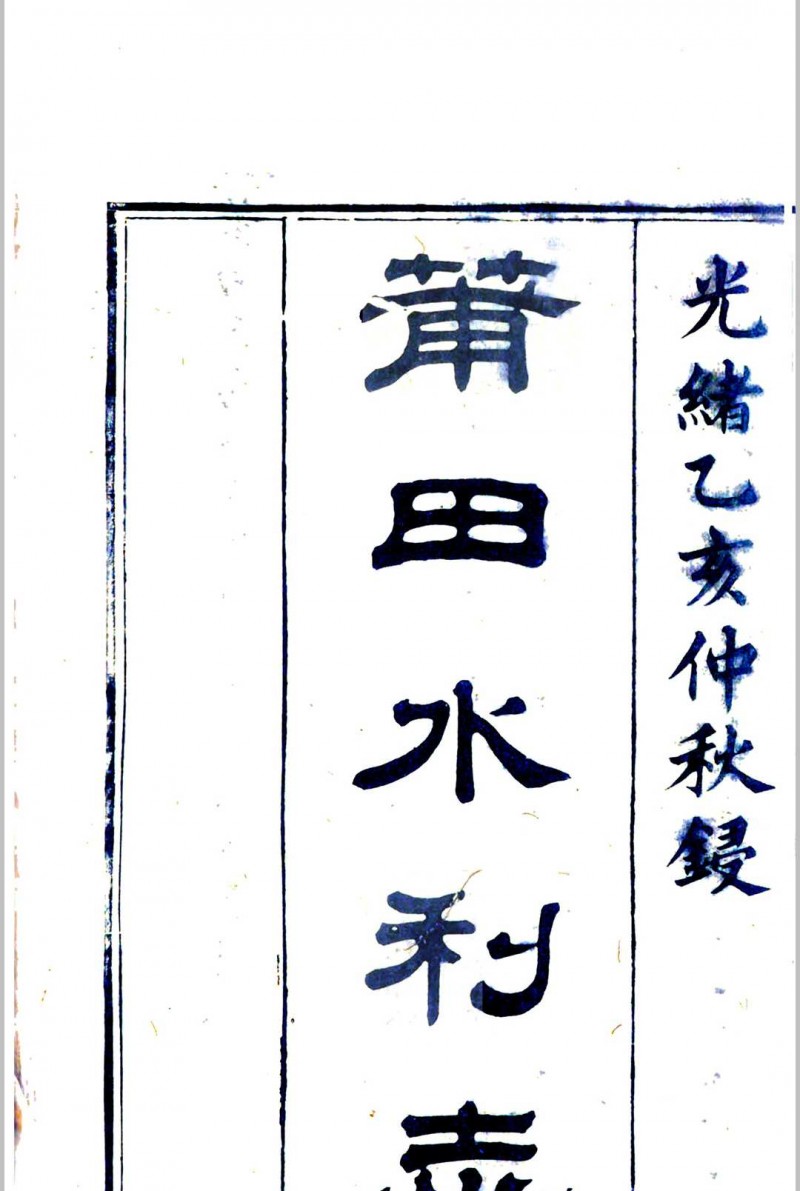 光緒乙亥仲秋鋟
莆田水利志